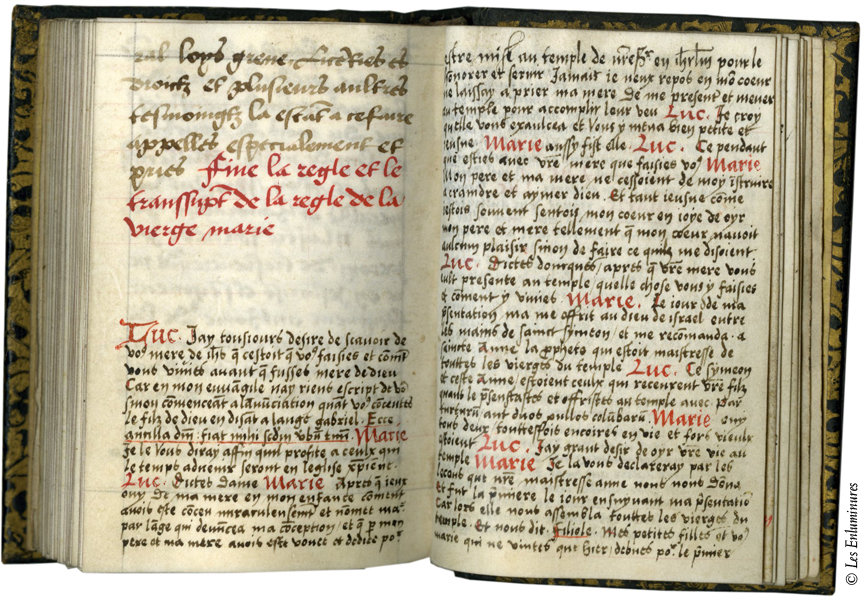 ral loys grene fictées et
droictz et plusieurs aultres
tesmoingtz la estat a ce faire
appelles especialement et
pries Fine la regle et le
transsupt de la regle de la
vierge marie
Luc. Jay tousiours desire de scavoir de
vo9 mere de ihs q cestoit q vo9 faisies et comt
vous vivies avant q fusses mere de dieu
Car en mon euvangile nay riens escript de vo9
sinon commenceant a lanunciation quant vo9 conceutes
le filz de dieu en disat a lange gabriel. Ecce
ancilla dm. fiat mihi scdm vbu tuum. Marie
Je le vous diray affin quil profite a ceulx qui
le temps advenir seront en leglise xpiene.
Luc. Dictes dame Marie Apres q ieux
ouy de ma mere en mon enfance coment
avois este coceu miraculeusemt et nomet ma
par lage qui denuncea ma coception, et q p mon
pere et ma mere avois este vouee et dediee po.
estre mise au temple de nres. en ihrlm pour le
honorer et servir Jamais ie neux repos en mo coeur
ne laissay a prier ma mere de me present et mener
au temple pour accomplir leur veu Luc. Je croy
quelle vous exaulcea et vous y mena bien petite et
ieusne Marie aussy fist elle. Luc. Ce pendant
que esties avec vre mere que faisies vo9 Marie
Mon pere et ma mere ne cessoient de moy istruire
a craindre et aymer dieu. Et tant ieusne come
iestois souvent sentois mon coeur en ioye de oyr
mon pere et mere tellement q mon coeur navoit
aulcun plaisir sinon de faire ce quilz me disoient
Luc. Dictes doncques, apres q vre mere vous
eult presente au temple quelle chose vous y faisies
et coment y vivies. Marie. Le iour de ma
psentation ma me offrit au dieu de israel entre
les mains de sainct symeon, et me recomanda a
saincte Anne la pphete qui estoit maistresse de
touttes les vierges du temple Luc. Ce symeon
et ceste Anne, estoient ceulx qui receurent vre filz
quant le psentastes et offristes au temple avec Par
turturu aut duos pullos colubaru Marie ouy
tous deux touttesfois encoires en vie et fors vieulx
estoient Luc. Jay grant desir de oyr vre vie au
temple Marie Je la vous declareray par les
lecons que nre maistresse anne nous donna
Et fut la pmiere le iour ensuyvant ma psentatio
Car lors elle nous assembla touttes les vierges du
temple. Et nous dit. Filiole. Mes petites filles et vo9
marie qui ne vintes que hier, debves po. le pmier
© Les Enluminures